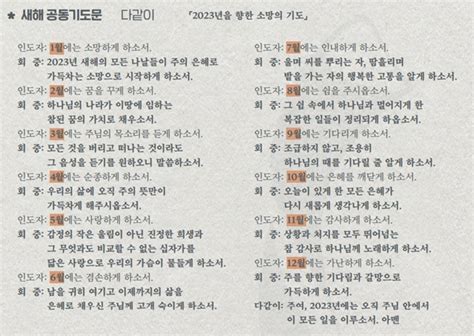 ★ 새해 공동기도문 다같이 「2023년을 향한 소망의 기도」
인도자: 1월에는 소망하게 하소서.
회 중: 2023년 새해의 모든 나날들이 주의 은혜로
가득차는 소망으로 시작하게 하소서.
인도자: 2월에는 꿈을 꾸게 하소서.
회 중: 하나님의 나라가 이땅에 임하는
참된 꿈의 가치로 채우소서.
인도자: 3월에는 주님의 목소리를 듣게 하소서.
회 중: 모든 것을 버리고 떠나는 것이라도
그 음성을 듣기를 원하오니 말씀하소서.
인도자: 4월에는 순종하게 하소서.
회 중: 우리의 삶에 오직 주의 뜻만이
가득차게 해주시옵소서.
인도자: 5월에는 사랑하게 하소서.
회 중: 감정의 작은 울림이 아닌 진정한 희생과
그 무엇과도 비교할 수 없는 십자가를
닮은 사랑으로 우리의 가슴이 물들게 하소서.
인도자: 6월에는 겸손하게 하소서.
회 중: 남을 귀히 여기고 이제까지의 삶을
은혜로 채우신 주님께 고개 숙이게 하소서.
인도자: 7월에는 인내하게 하소서.
회 중: 울며 씨를 뿌리는 자, 땀흘리며
밭을 가는 자의 행복한 고통을 알게 하소서.
인도자: 8월에는 쉼을 주시옵소서.
회 중: 그 쉼 속에서 하나님과 멀어지게 한
복잡한 일들이 정리되게 하옵소서.
인도자: 9월에는 기다리게 하소서.
회 중: 조급하지 않고, 조용히
하나님의 때를 기다릴 줄 알게 하소서.
인도자: 10월에는 은혜를 깨닫게 하소서.
회 중: 오늘이 있게 한 모든 은혜가
다시 새롭게 생각나게 하소서.
인도자: 11월에는 감사하게 하소서.
회 중: 상황과 처지를 모두 뛰어넘는
참 감사로 하나님께 노래하게 하소서.
인도자: 12월에는 가난하게 하소서.
회 중: 주를 향한 기다림과 갈망으로
가득하게 하소서.
다같이: 주여, 2023년에는 오직 주님 안에서
이 모든 일을 이루소서. 아멘